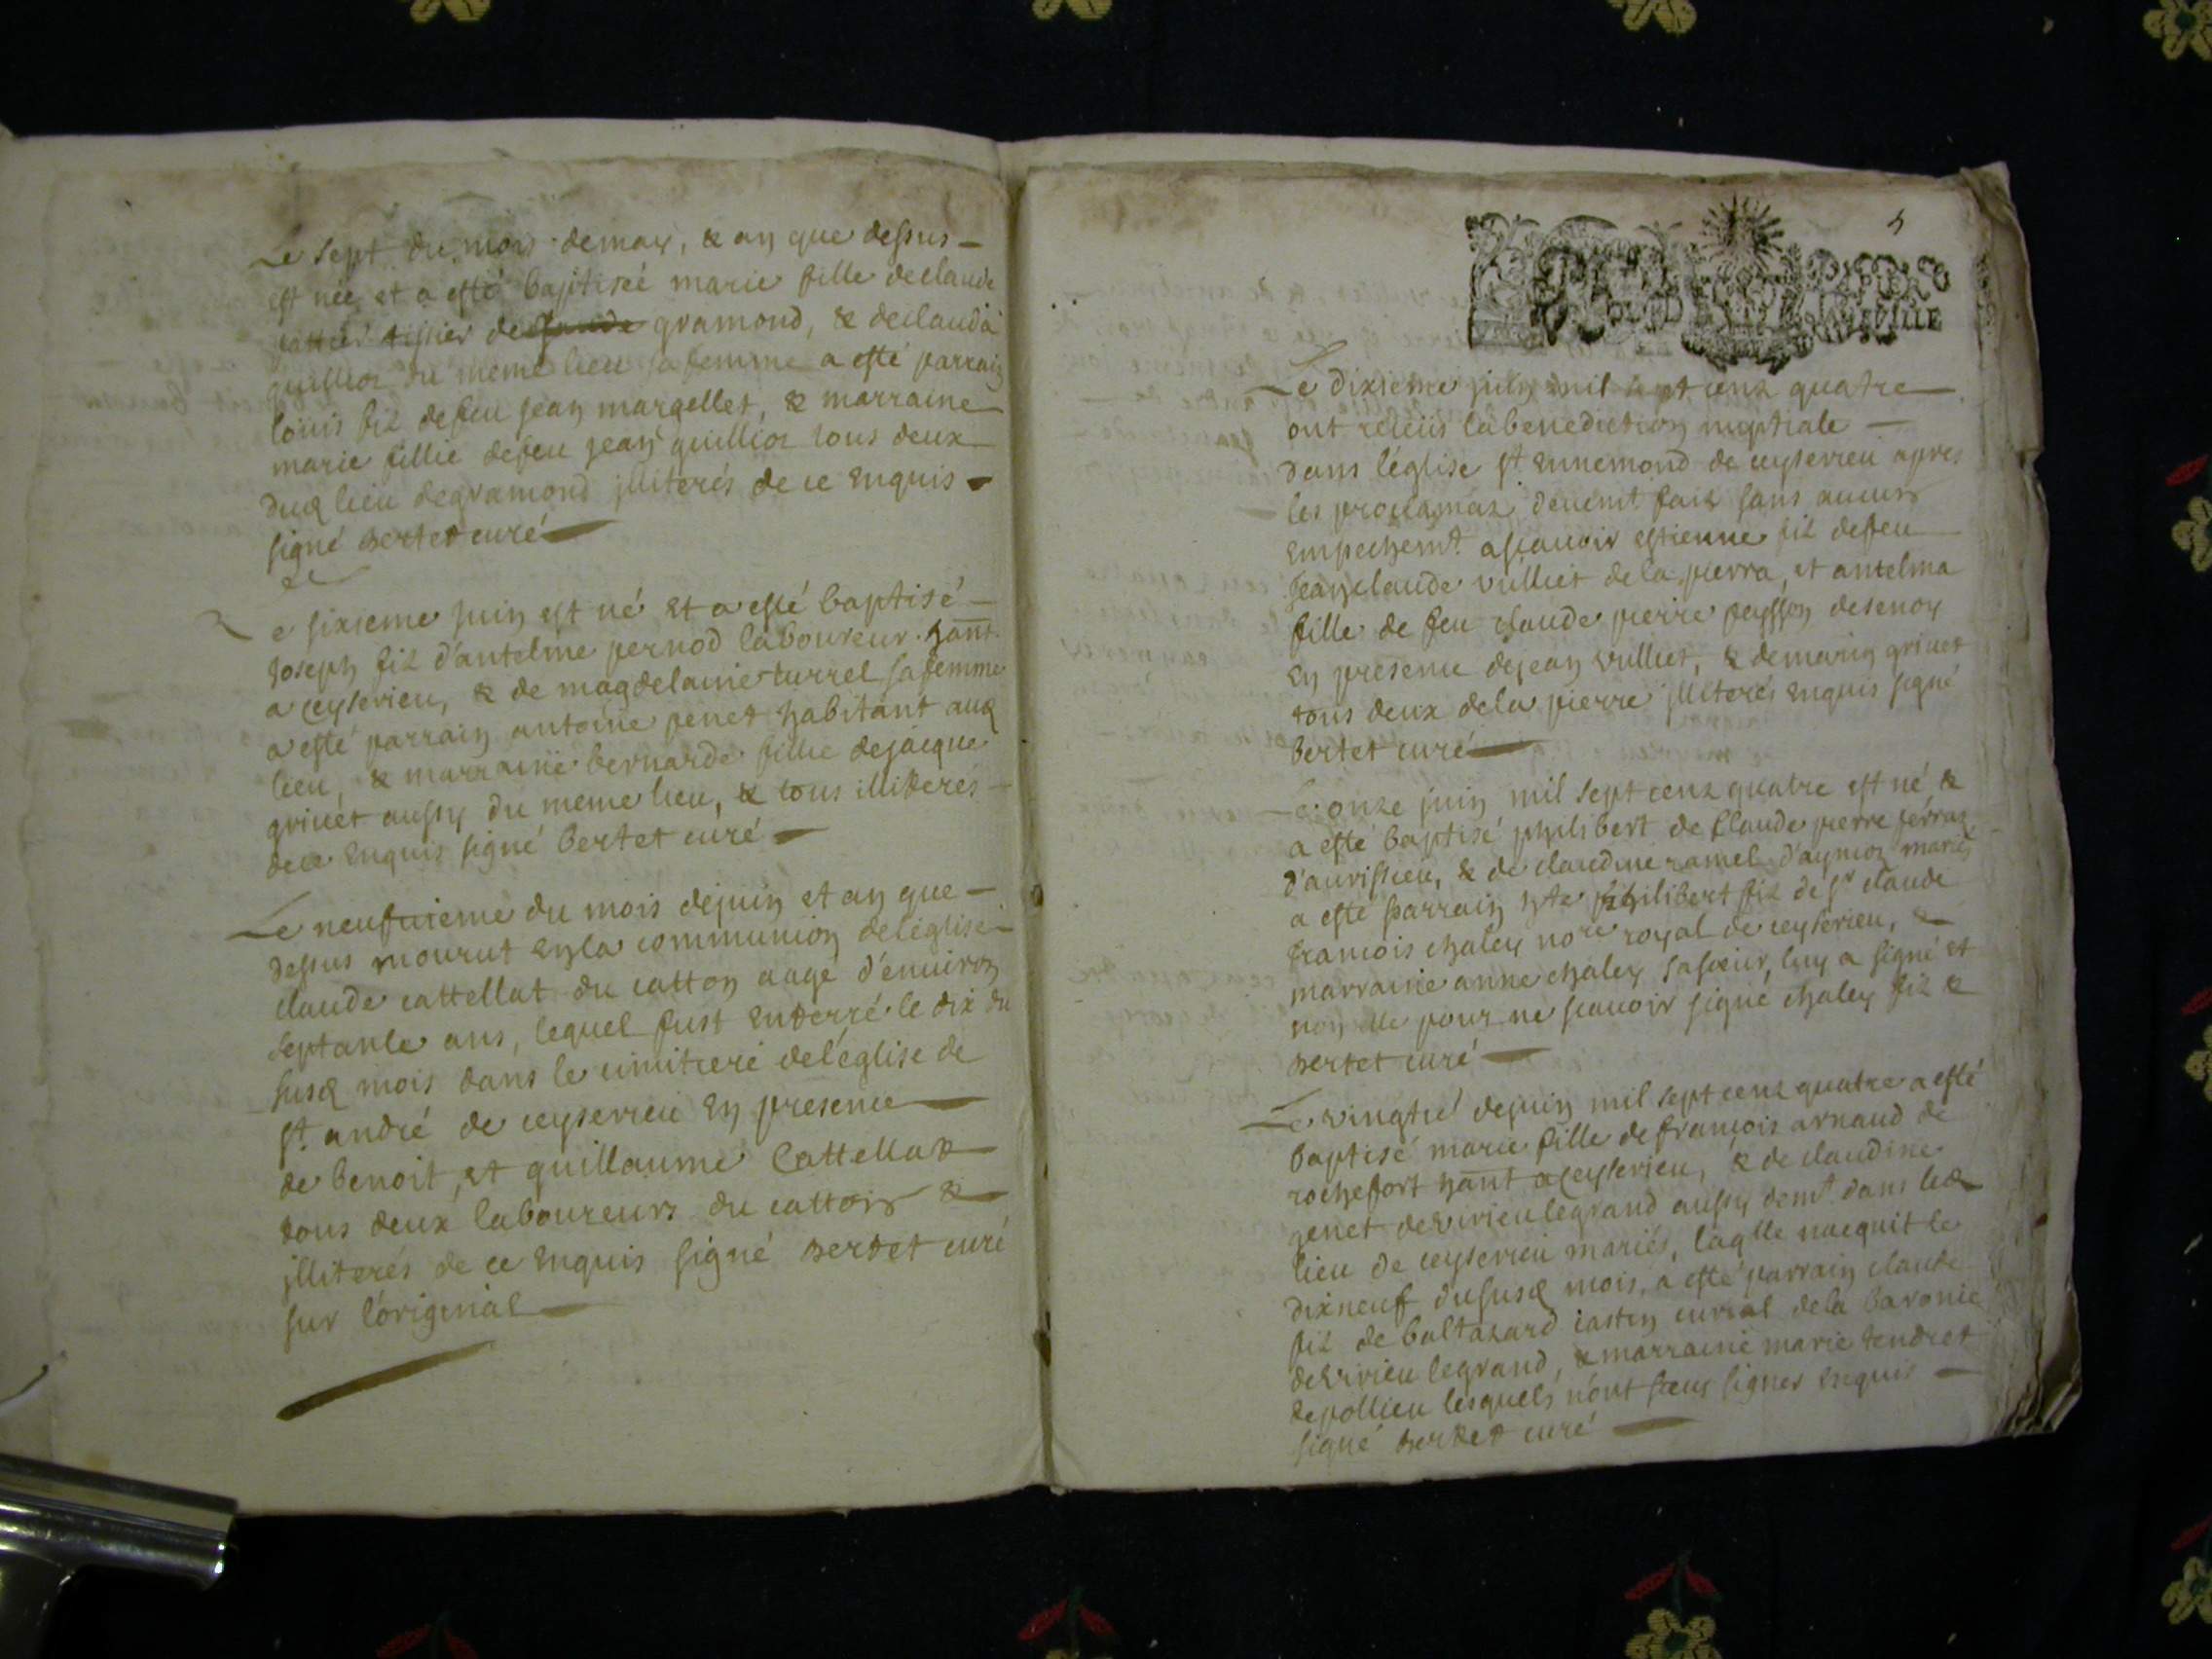 Le sept du mois demay, & an que dessus
est née et a esté baptiseé marie fille declaude
tissier de gramond, & declauda
guillioz du meme lieu sa femme a esté parrain
loüis filz defeu jean margellet, & marraine
marie fillie defeu jean guillioz tous deux
dud lieu degramond jlliterés de ce enquis
signé bertet curé
Le sixieme juin est né et a esté baptisé
Joseph filz d'antelme pernod laboureur hant
a ceyserieu, & de magdelaine turrel sa femme
a esté parrain antoine penet habitant aud
lieu, & marraine bernarde fillie dejacque
grivet aussy du meme lieu, & tous illiterés
dece enquis signé bertet curé
Le neufvieme du mois dejuin et an que
dessus mourut enla communion deléglise
claude cattellat du catton aagé d'environ
septante ans, lequel fust enterré le dix du
susd mois dans le cimitiere deléglise de
st. andré de ceyserieu en presence
de benoit, et guillaume Cattellat
tous deux laboureurs du catton &
jlliterés de ce enquis signé bertet curé
sur l'original
5
Le dixieme juin mil sept cenz quatre
ont receüs labenediction nuptiale
dans léglise st. ennemond de ceyserieu apres
les proclamaz deuemt. fais sans aucun
empechemt. ascavoir estienne filz defeu
Jeanclaude vulliet de la pierra, et antelma
fille de feu claude pierre peysson desenoy
en presence dejean vulliet, & demarin grivet
tous deux dela pierre jlliterés enquis signé
bertet curé
Le onze juin mil sept cenz quatre est né &
a esté baptisé philibert de Claude pierre ferraz
d'avrissieu, & de claudine ramel d'aynioz mariés
a esté parrain hte philibert filz de sr claude
francois chaley nore royal de ceyserieu, &
marraine anne chaley sasoeur, luy a signé et
non elle pour ne scavoir signé chaley filz &
bertet curé
Le vingtie dejuin mil sept cenz quatre a esté
baptisé marie fille de françois arnaud de
rochefort hant a ceyserieu, & de claudine
genet devirieu legrand aussy demt. dans led
lieu de ceyserieu mariés, laqlle nacquit le
dixneuf dususd mois, a esté parrain claude
filz de baltazard castin curial dela baronie
devirieu legrand, & marraine marie tendret
depollieu lesquels n'ont sceu signer enquis
signé bertet curé